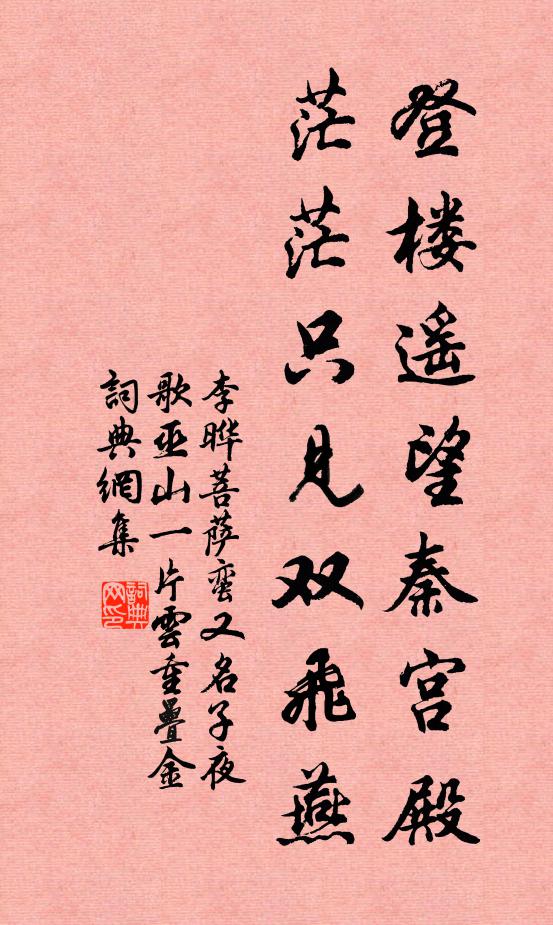 登楼遥望秦宫殿
茫茫只见双飞燕
李晔菩萨蛮又名子夜
歌巫山一片雲重疊金
詞典網集
詞典
网印